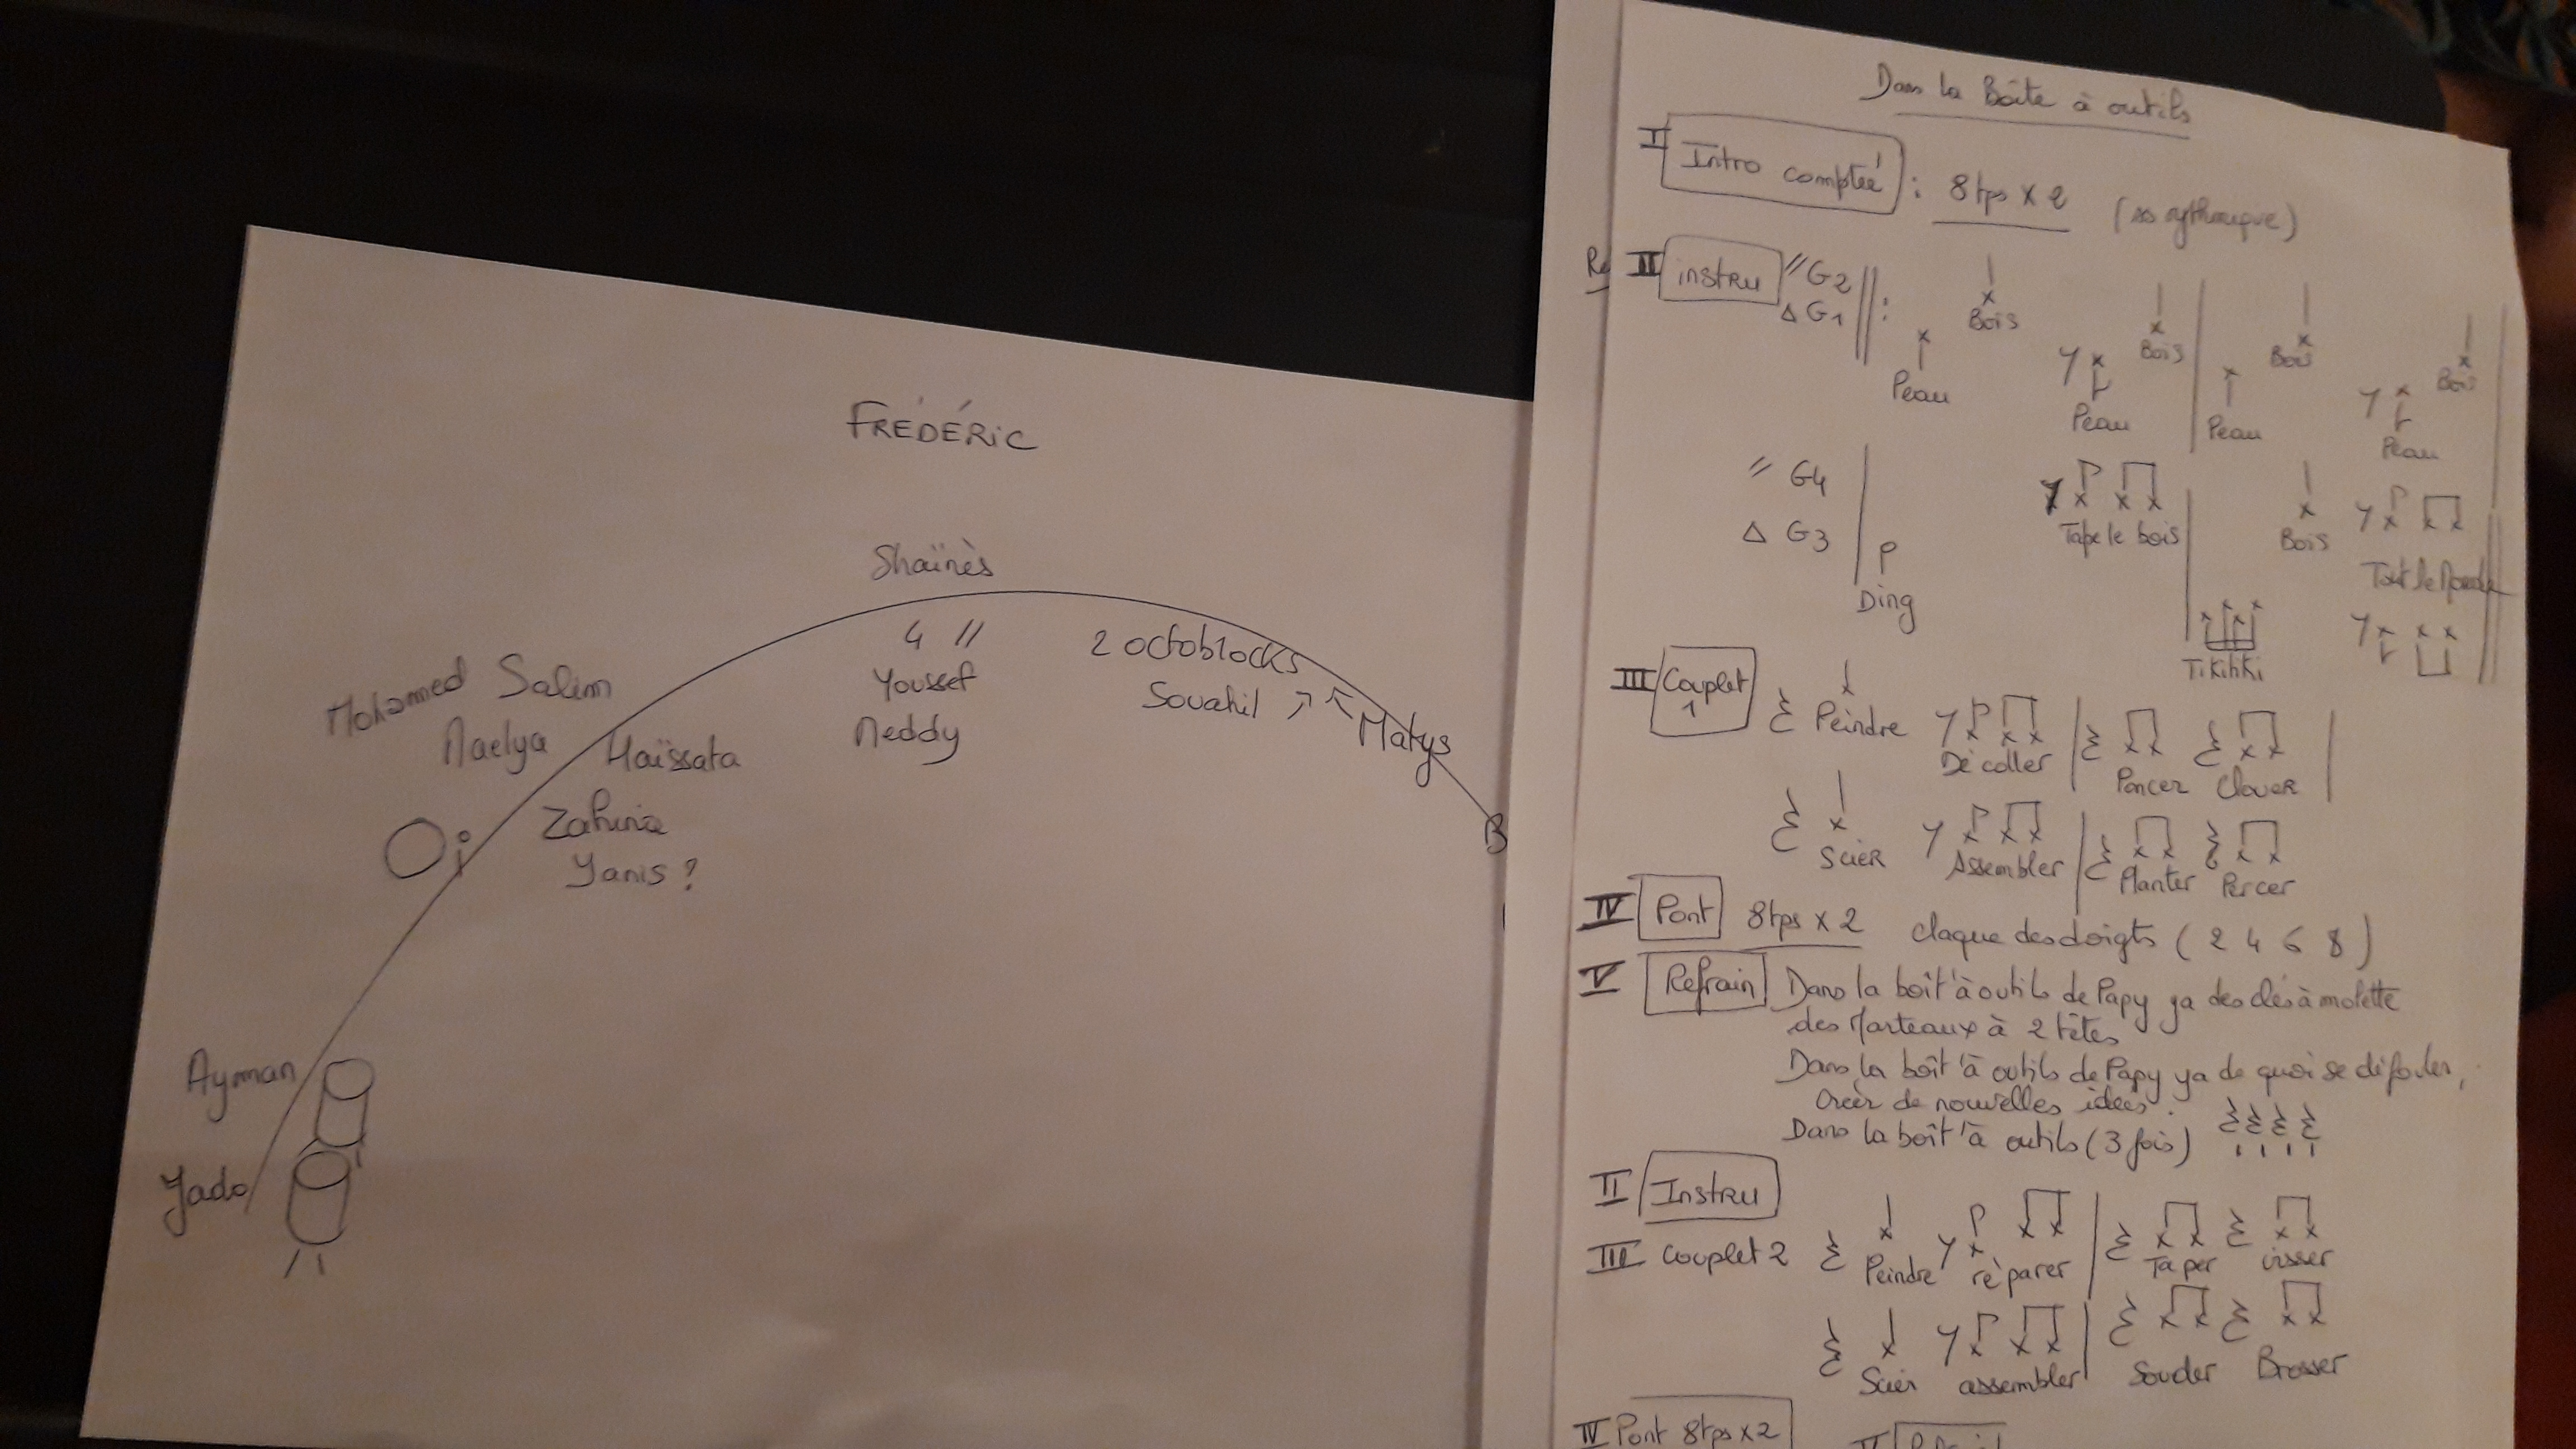 FRÉDÉRiC
Shaïnès
4 //
2 octoblocks
Youssef
Souahil
Neddy
Matys
Mohamed Salim
Naelya
Haïssata
Zahina
Yanis ?
Ayman
Yado
Dans la Boîte à outils
I Intro comptée : 8 tps x 2 (ss rythmique)
II instru // G2
Δ G1
Bois Bois Bois Bois
Peau Peau Peau Peau
// G4 Tape le bois Bois Tout le Monde
Δ G3 Ding Tikitiki
III Couplet 1 Peindre Décoller Poncer Clouer
Scier Assembler Planter Percer
IV Pont 8 tps x 2 claque des doigts ( 2 4 6 8 )
V Refrain Dans la boît'à outils de Papy ya des clés à molette
des Marteaux à 2 têtes
Dans la boît'à outils de Papy ya de quoi se défouler,
Créer de nouvelles idées.
Dans la boît'à outils (3 fois)
II Instru
III Couplet 2 Peindre réparer Taper visser
Scier assembler Souder Brosser
IV Pont 8 tps x 2